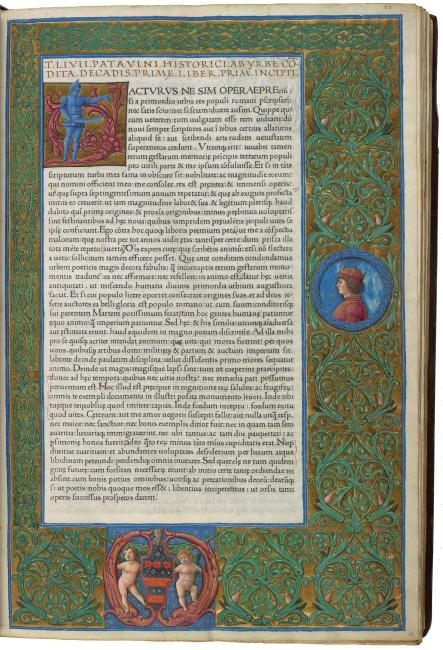 T. LIVII PATAVINI HISTORICI. AB VRBE CO
DITA DECADIS. PRIME. LIBER. PRIM. INCIPIT.
ACTVRVS NE SIM OPERAEPRE
si a primordio urbis res populi romani
nec satis scio: nec si sciam: dicere ausim. Quippe qui
cum ueterem: tum uulgatam esse rem uideam: dū
noui semper scriptores aut ī rebus certius allaturos
aliquid se: aut scribendi arte rudem uetustatem
superaturos credunt. iuuabit tamen
rerum gestarum memorię terrarum populi
pro uirili parte & me ipsum cōsuluisse. Et si in tāta
scriptorum turba mea fama in obscuro sit: nobilitate: ac magnitudie eorum:
qui nomini officient meo: me consoler. res est & immensi operis:
ut quę supra septingentesimum annum repetatur: & quę ab exiguis profecta
initiis eo creuerit: ut iam magnitudine laboret sua: & legētium haud
dubito quī prime origines: & proxia originibus: minus prębitura uoluptatis
sint festinantibus ad hęc noua: quibus iampridem
ipsę conficiunt. Ego cōtra hoc quoqͥ laboris premium petā: ut me a cōspectu
malorum: quę nostra per tot annos uidit ętas: tantisper certe: dum prisca illa
tota mēte
a uero: sollicitum tamen efficere posset. Que ante conditam condendamue
urbem poeticis magis decora fabulis: incorruptis rerum gestarum monu
mentis ea nec affirmare: nec refellere in animo est. datur hęc uenia
antiquitati: ut miscendo humana diuinis primordia urbium augustiora
faciat. Et si cui populo licere oportet consecrare origines suas: et ad deos re
ferre auctores: ea belli gloria est populo romano: ut cum suum: conditorisqͥ
sui parentem Martem potissimum ferat: tam hoc gentes humane patiuntur
equo animo: imperium patiuntur. Sed hęc & his similia: utcunqͥ aīaduersa
aut estimata erunt. haud equidem in magno ponam discrimie. Ad illa mihi
pro se quisqͥ acriter intendat animum: que uita: qui mores fuerint: per quos
uiros. quibusqͥ artibus domi: militięqͥ & partum & auctum imperium sit.
labente deinde paulatim disciplina: uelut desidentis primo mores sequatur
animo. Deinde ut magis: magisqͥ lapsi sint: tum ire coeperint precipites:
donec ad hęc tempora: quibus nec uitia nostra: nec remedia pati possumus
peruentum est. Hoc illud est precipue in cognitione rex salubre: ac frugifex:
omnis te exempli documenta in illustri posita monumento ītueri. Inde tibi
tuęqͥ reipublicę quod imitere: capias. Inde foedum inceptu: foedum exitu
quod uites. Ceterum: aut me amor negotii suscepti fallit: aut nulla unqͣ resp.
nec maior: nec sanctior: nec bonis exemplis ditior fuit: nec in quam tam sero
auaritia: luxuriaqͥ immigrauerint. nec ubi tantus: ac tam diu paupertati: ac
psimonię honos fuerit. adeo quāto rex minus tāto minus cupiditatis erat. Nup
diuitiae auaritiam: et abundantes uoluptates desiderium per luxum atque
libidinem pereundi: perdendiqͥ omnia inuexere. Sed querelę ne tum quidem
gratę futurę: cum forsitan necessarię erunt: ab initio certe tantę ordiendae rei
absint. cum bonis potius ominibus: uotisqͥ ac precationibus deorū: dearūqͥ
si ut poetis: nobis quoque mos esset: libentius inciperemus: ut orsis tanti
operis successus prosperos darent.